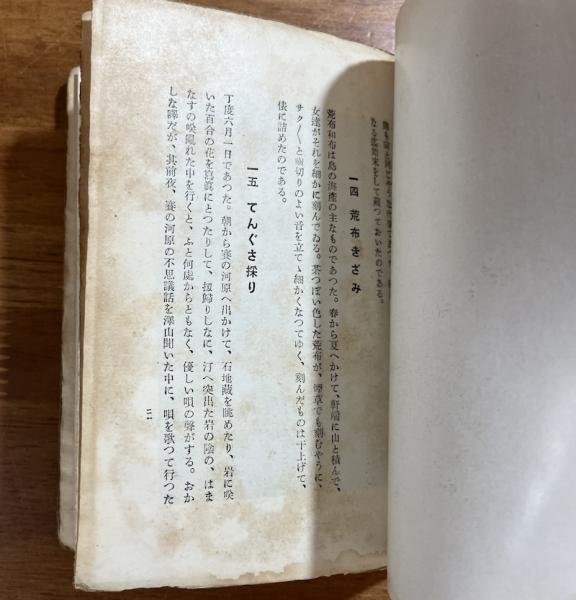 なる瓜始末をして蔵つておいたのである。
一四 荒布きざみ
荒布和布は島の海産の主なものであつた。春から夏へかけて、軒端に山と積んで、
女達がそれを細かに刻んでゐる。茶つぽい色した荒布が、煙草でも刻むやうに、
サク〳〵と歯切りのよい音を立てゝ細かくなつてゆく、刻んだものは干上げて、
俵に詰めたのである。
一五 てんぐさ採り
丁度六月一日であつた。朝から賽の河原へ出かけて、石地蔵を眺めたり、岩に咲
いた百合の花を寫眞にとつたりして、扨歸りしなに、汀へ突出た岩の陰の、はま
なすの咲亂れた中を行くと、ふと何處からともなく、優しい唄の聲がする。おか
しな譯だが、其前夜、賽の河原の不思議話を澤山聞いた中に、唄を歌つて行つた
二一